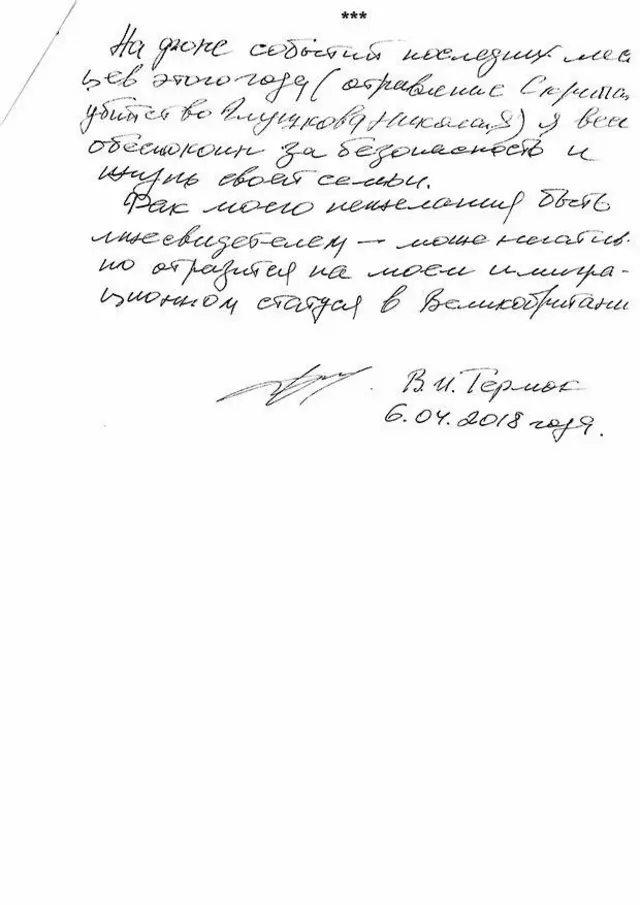 ***
На фоне событий последних меся
цев этого года (отравление Скрипал
убийство Глушкова Николая) я весь
обеспокоин за безопасность и
жизнь своей семьи.
Факт моего нежелания быть
лжесвидетелем — може негатив-
но отразится на моем иммигра-
ционном статуся в Великобритани
В.И. Термок
6.04.2018 года.